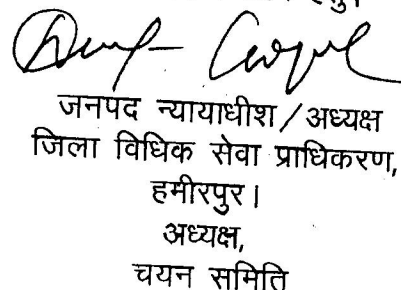 जनपद न्यायाधीश/अध्यक्ष
जिला विधिक सेवा प्राधिकरण,
हमीरपुर।
अध्यक्ष,
चयन समिति